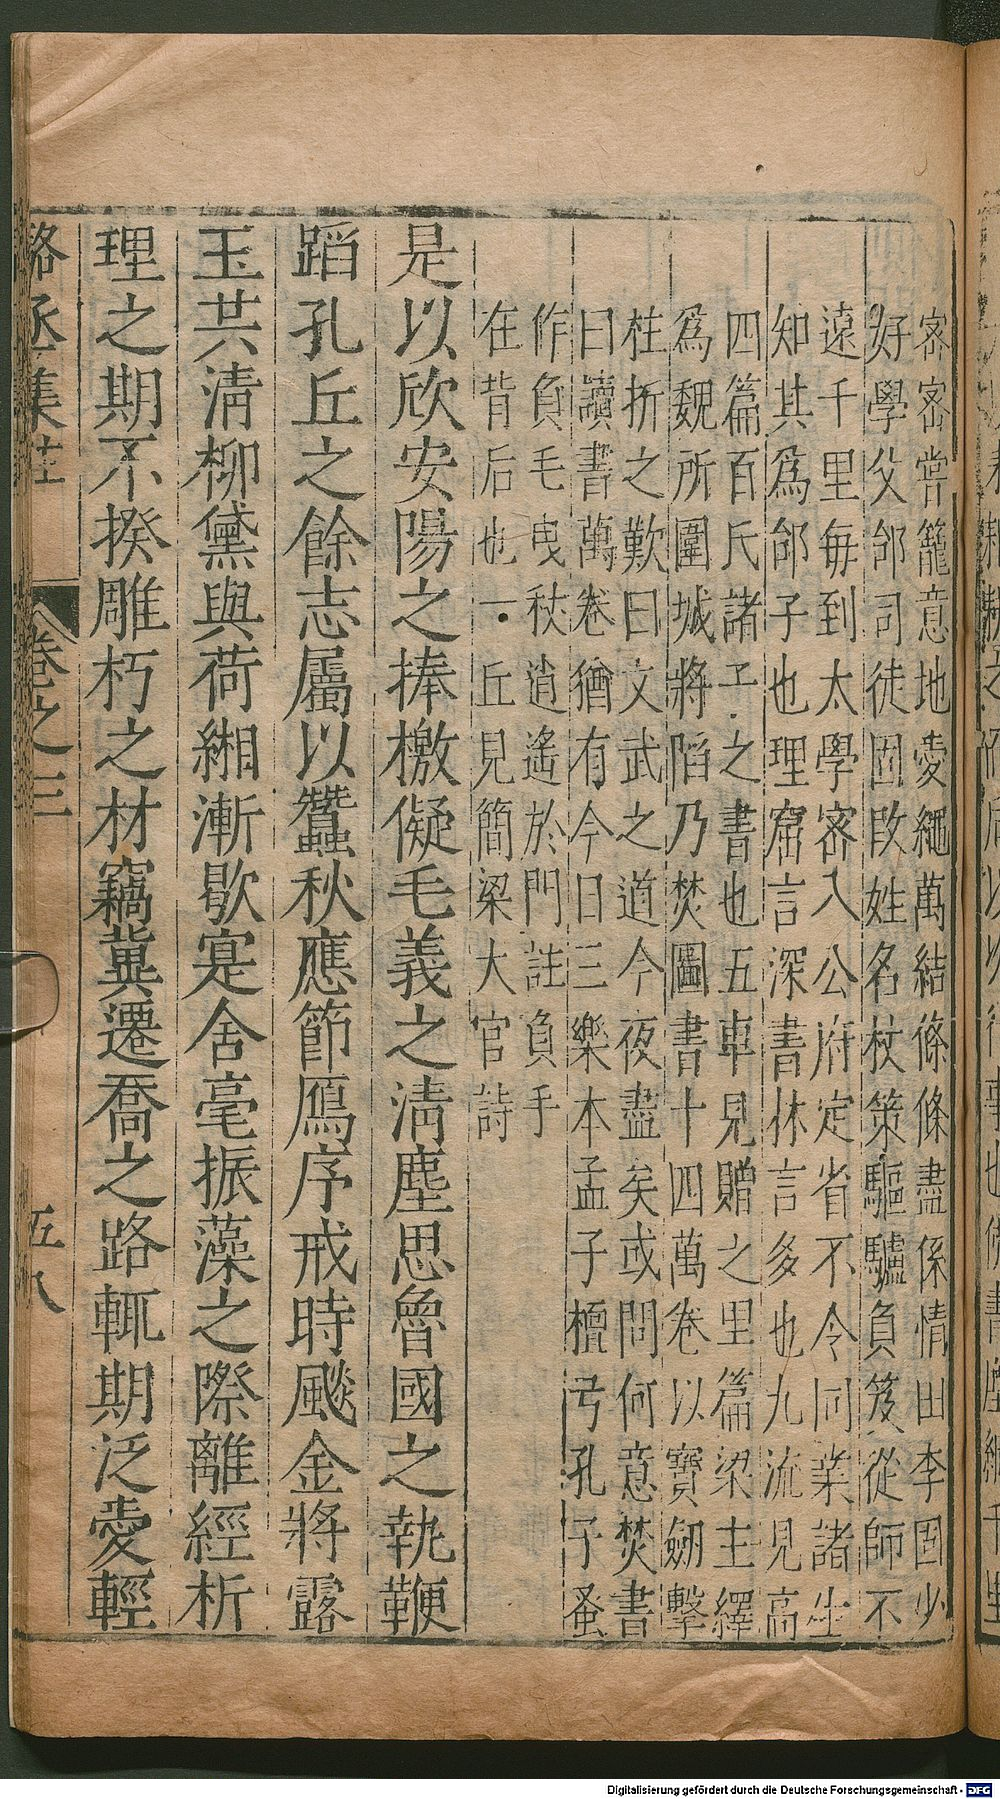 密密嘗籠意地愛繩萬結條條盡係情田李固少
好學父郃司徒固改姓名杖策驅驢負笈從師不
遠千里每到太學密入公府定省不令同業諸生
知其爲郃子也理窟言深書林言多也九流見高
四篇百氏諸子之書也五車見贈之里篇梁主繹
爲魏所圍城將陷乃焚圖書十四萬卷以寶劒擊
柱折之歎曰文武之道今夜盡矣或問何意焚書
曰讀書萬卷猶有今日三樂本孟子檀弓孔子蚤
作負毛曳杖逍遙於門註負手
在背后也一丘見簡梁大官詩
是以欣安陽之捧檄儗毛義之淸塵思魯國之執鞭
蹈孔丘之餘志屬以蠶秋應節鴈序戒時飈金將露
玉共淸柳黛與荷緗漸歇寔舍毫振藻之際離經析
理之期不揆雕朽之材竊冀遷喬之路輒期泛愛輕
駱丞集註 卷之三 五八
Digitalisierung gefördert durch die Deutsche Forschungsgemeinschaft - DFG